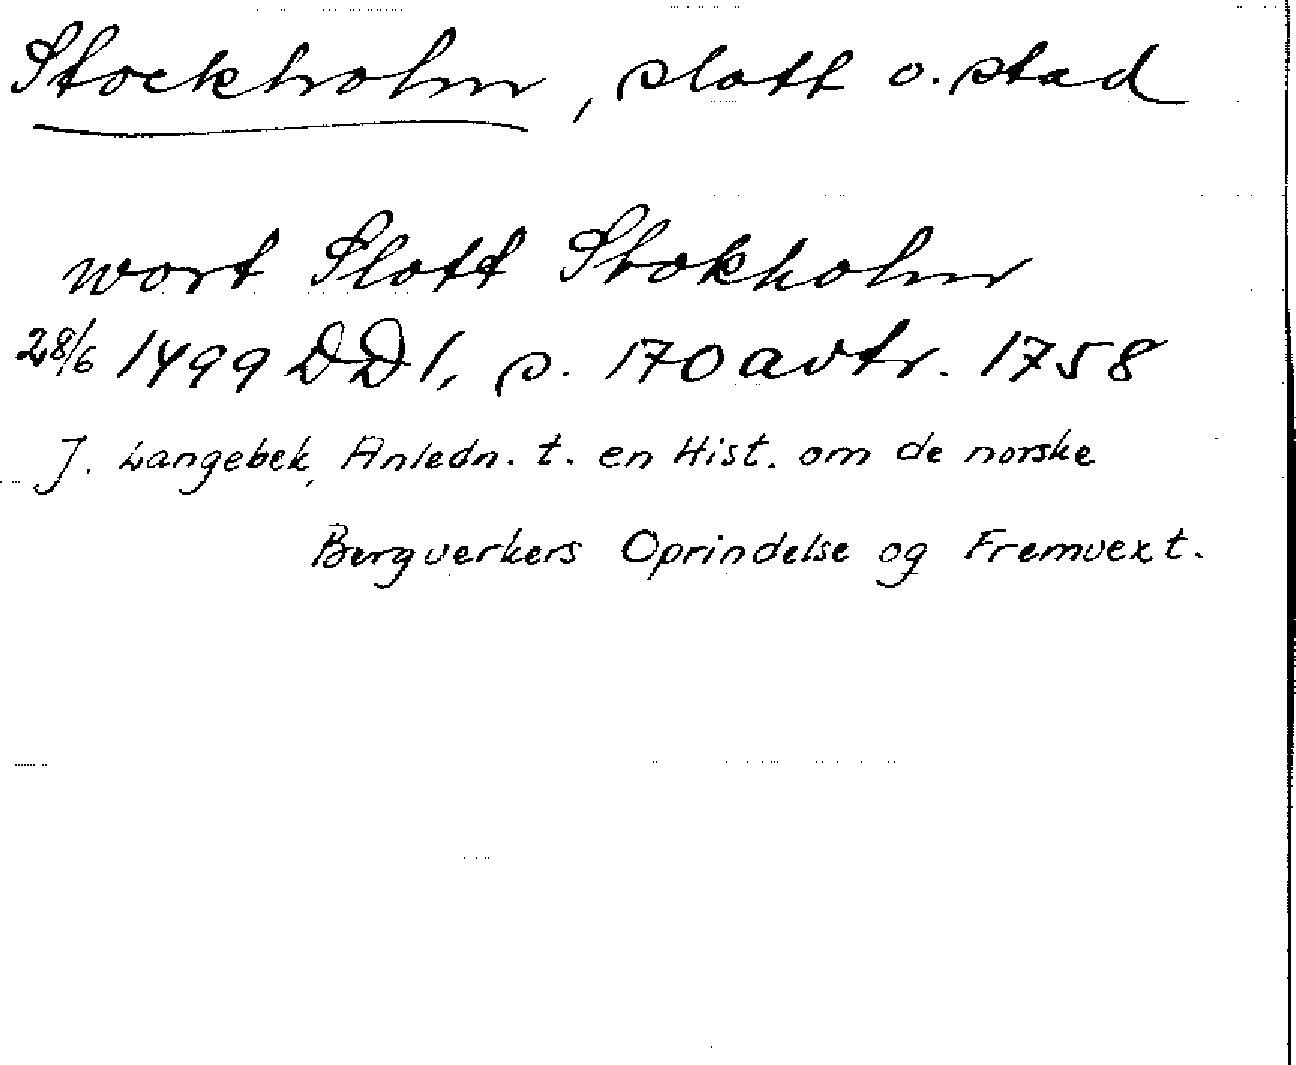 Stockholm, slott o. stad
wort Slott Stokholm
28/6 1499 DD1, s. 170 avtr. 1758
J. Langebek, Anledn. t. en Hist. om de norske
Bergverkers Oprindelse og Fremvext.